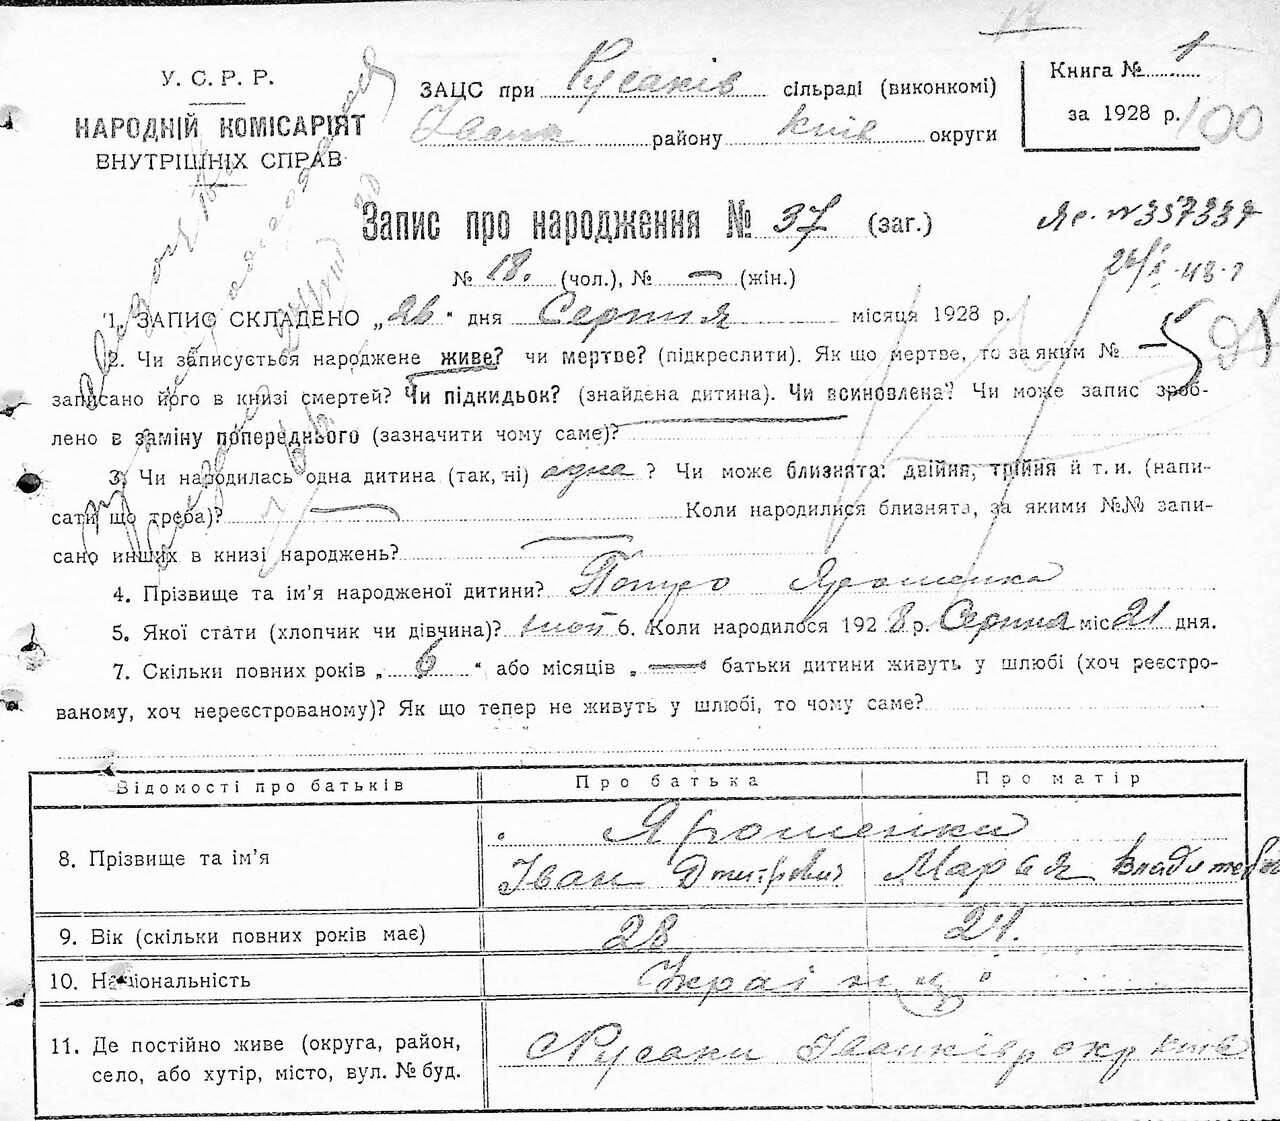 У. С. Р. Р.
НАРОДНІЙ КОМІСАРІЯТ
ВНУТРІШНІХ СПРАВ
ЗАЦС при Русаків сільраді (виконкомі)
Іванк району Київ округи
Книга № 1
за 1928 р.
100
Запис про народження № 37 (заг.)
№ 18. (чол.), № — (жін.)
Яс. № 357337
1. ЗАПИС СКЛАДЕНО „26“ дня Серпня місяця 1928 р.
2. Чи записується народжене живе? чи мертве? (підкреслити). Як що мертве, то за яким № —
записано його в книзі смертей? Чи підкидьок? (знайдена дитина). Чи всиновлена? Чи може запис зроб-
лено в заміну попереднього (зазначити чому саме)?
3. Чи народилась одна дитина (так, ні) одна ? Чи може близнята: двійня, трійня й т. и. (напи-
сати що треба)? — Коли народилися близнята, за якими №№ запи-
сано инших в книзі народжень? —
4. Прізвище та ім’я народженої дитини? Петро Ярошенко
5. Якої стати (хлопчик чи дівчина)? 6. Коли народилося 1928 р. Серпня міс. 21 дня.
7. Скільки повних років „6“ або місяців „— батьки дитини живуть у шлюбі (хоч реєстро-
ваному, хоч нереєстрованому)? Як що тепер не живуть у шлюбі, то чому саме?
Відомості про батьків Про батька Про матір
8. Прізвище та ім’я Ярошенки
Іван Дмитрович Марія
9. Вік (скільки повних років має) 28 24.
10. Національність Україн
11. Де постійно живе (округа, район,
село, або хутір, місто, вул. № буд.
Русаки Іванків р окр Київ